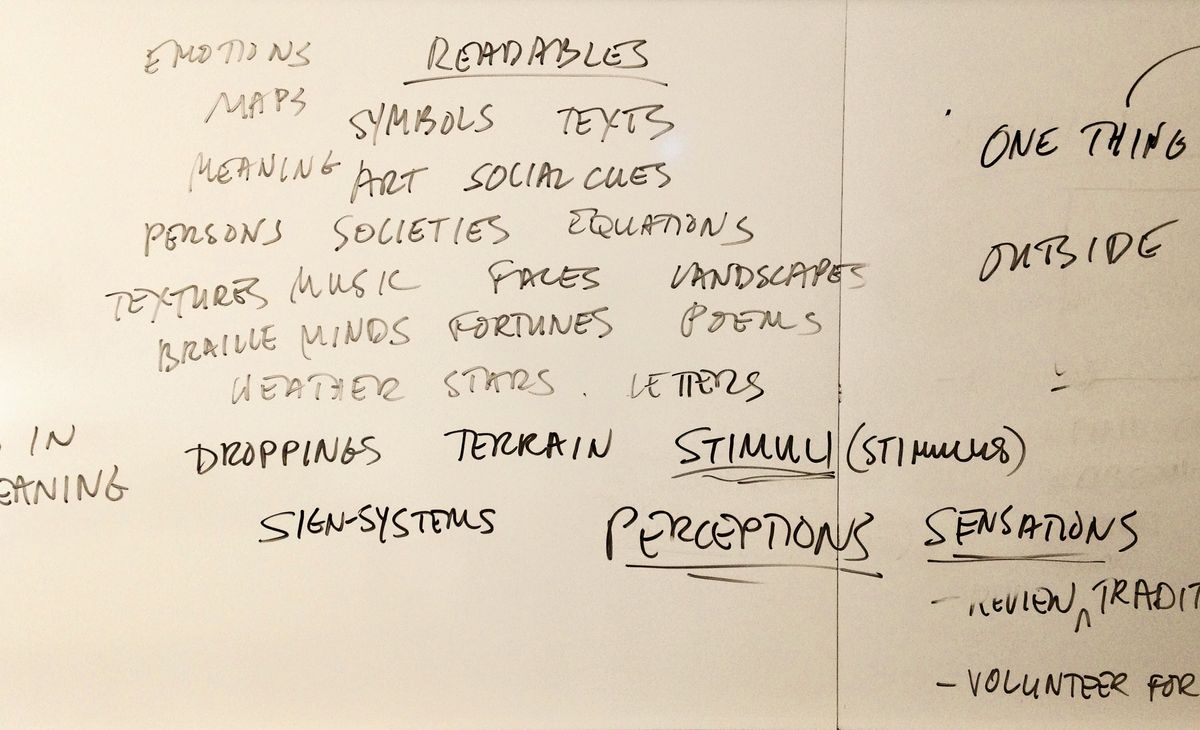 EMOTIONS READABLES
MAPS SYMBOLS TEXTS
MEANING ART SOCIAL CUES
PERSONS SOCIETIES EQUATIONS
TEXTURES MUSIC FACES LANDSCAPES
BRAILLE MINDS FORTUNES POEMS
WEATHER STARS . LETTERS
DROPPINGS TERRAIN STIMULI (STIMULUS)
SIGN-SYSTEMS PERCEPTIONS SENSATIONS
IN
EANING
ONE THING
OUTSIDE
- REVIEW ^ TRADIT
- VOLUNTEER FOR